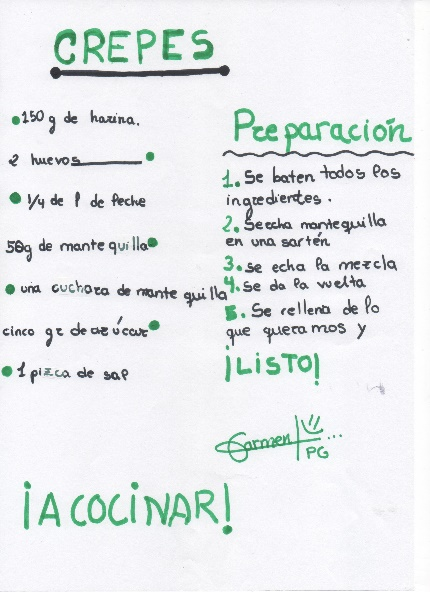 CREPES
150 g de harina.
2 huevos
1/4 de l de leche
50g de mantequilla
una cuchara de mantequilla
cinco gr de azúcar
1 pizca de sal
Preparación
1. Se baten todos los
ingredientes.
2. Se echa mantequilla
en una sartén
3. se echa la mezcla
4. Se da la vuelta
5. Se rellena de lo
que queramos y
¡LiSTO!
Carmen
PG
¡A COCiNAR!